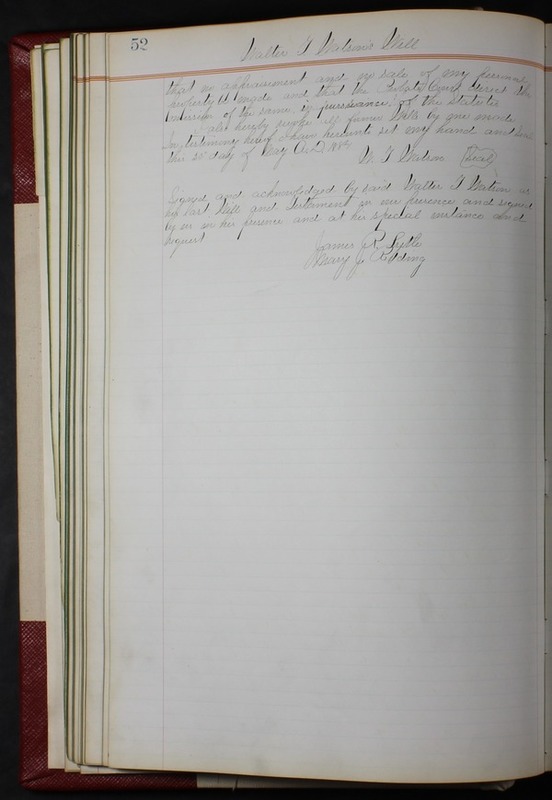 52
Walter T Watson's Will
that no appraisement and no sale of my personal
property be made and that the Probate Court direct the
omission of the same in pursuance of the statute
I also hereby revoke all former Wills by me made
In testimony hereof I have hereunto set my hand and seal
this day of May A.D.
W. T. Watson (Seal)
Signed and acknowledged by said Walter T Watson as
his last Will and Testament in our presence and signed
by us in his presence and at his special instance and
request
James R. Lytle
Mary J. Redding